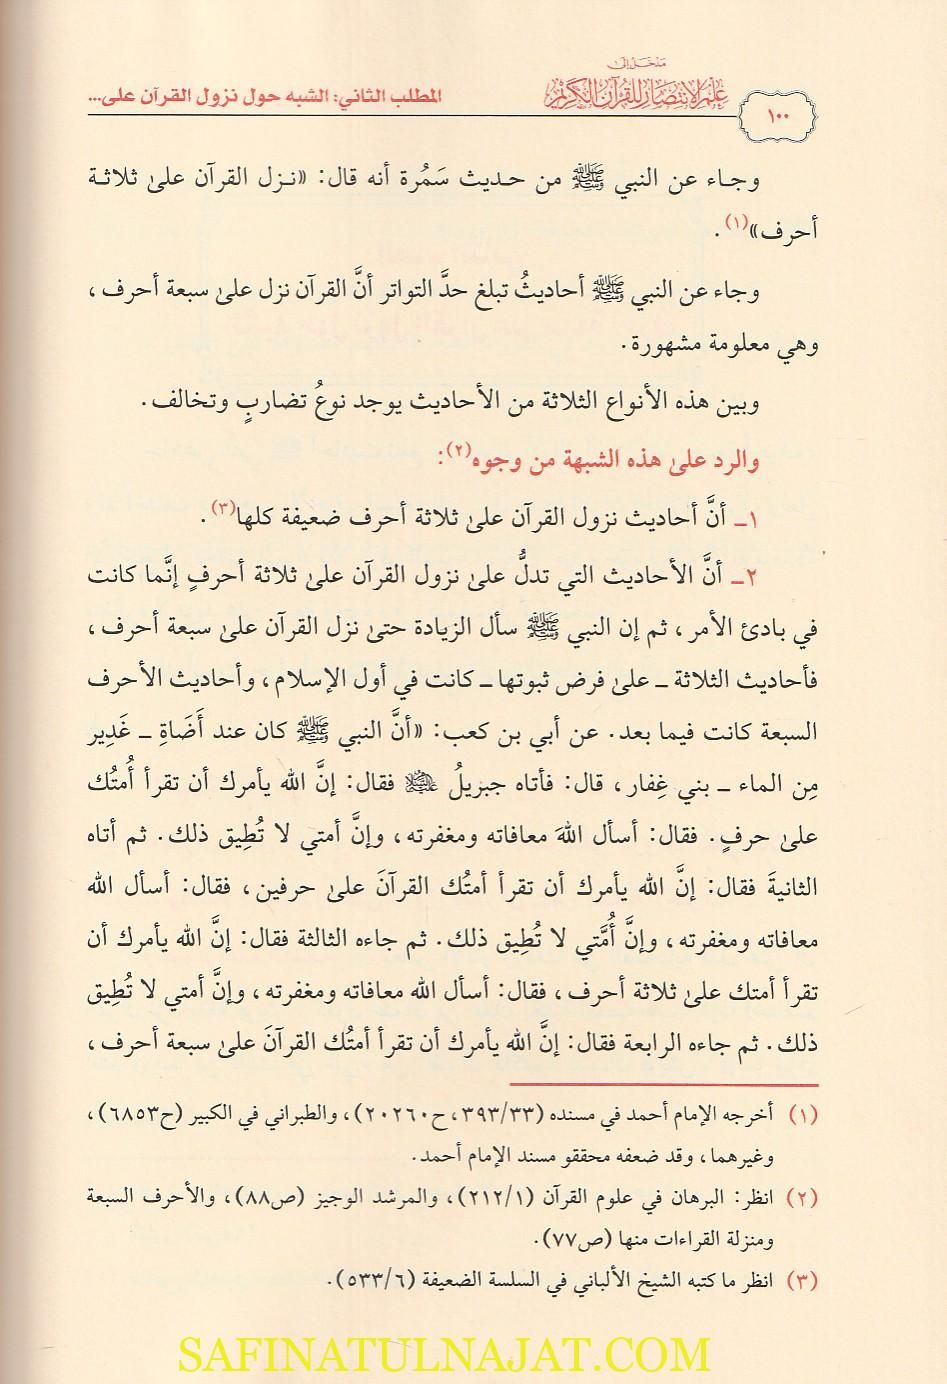 مدخل إلى
علم الانتصار للقرآن الكريم
المطلب الثاني: الشبه حول نزول القرآن على...
١٠٠
وجاء عن النبي ﷺ من حديث سَمُرة أنه قال: «نزل القرآن علىٰ ثلاثة
أحرف»(١).
وجاء عن النبي ﷺ أحاديثُ تبلغ حدَّ التواتر أنَّ القرآن نزل علىٰ سبعة أحرف،
وهي معلومة مشهورة.
وبين هذه الأنواع الثلاثة من الأحاديث يوجد نوعُ تضاربٍ وتخالف.
والرد علىٰ هذه الشبهة من وجوه(٢):
١ـ أنَّ أحاديث نزول القرآن علىٰ ثلاثة أحرف ضعيفة كلها(٣).
٢ـ أنَّ الأحاديث التي تدلُّ علىٰ نزول القرآن علىٰ ثلاثة أحرفٍ إنَّما كانت
في بادئ الأمر، ثم إن النبي ﷺ سأل الزيادة حتىٰ نزل القرآن علىٰ سبعة أحرف،
فأحاديث الثلاثة ـ علىٰ فرض ثبوتها ـ كانت في أول الإسلام، وأحاديث الأحرف
السبعة كانت فيما بعد. عن أبي بن كعب: «أنَّ النبي ﷺ كان عند أَضَاةِ ـ غَدِير
مِن الماء ـ بني غِفار، قال: فأتاه جبريلُ عليه السلام فقال: إنَّ الله يأمرك أن تقرأ أُمتُك
علىٰ حرفٍ. فقال: أسأل اللهَ معافاته ومغفرته، وإنَّ أمتي لا تُطِيق ذلك. ثم أتاه
الثانيةَ فقال: إنَّ الله يأمرك أن تقرأ أمتُك القرآنَ علىٰ حرفين، فقال: أسأل الله
معافاته ومغفرته، وإنَّ أُمَّتي لا تُطِيق ذلك. ثم جاءه الثالثة فقال: إنَّ الله يأمرك أن
تقرأ أمتك علىٰ ثلاثة أحرف، فقال: أسأل الله معافاته ومغفرته، وإنَّ أمتي لا تُطِيق
ذلك. ثم جاءه الرابعة فقال: إنَّ الله يأمرك أن تقرأ أمتُك القرآنَ علىٰ سبعة أحرف،
(١) أخرجه الإمام أحمد في مسنده (٣٩٣/٣٣، ح٢٠٢٦٠)، والطبراني في الكبير (ح٦٨٥٣)،
وغيرهما، وقد ضعفه محققو مسند الإمام أحمد.
(٢) انظر: البرهان في علوم القرآن (٢١٢/١)، والمرشد الوجيز (ص٨٨)، والأحرف السبعة
ومنزلة القراءات منها (ص٧٧).
(٣) انظر ما كتبه الشيخ الألباني في السلسة الضعيفة (٥٣٣/٦).
SAFINATULNAJAT.COM